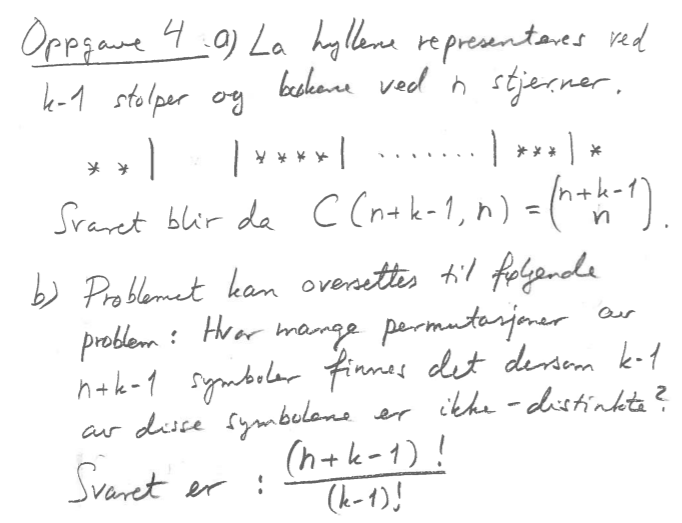 Oppgave 4 a) La hyllene representeres ved
k-1 stolper og bøkene ved n stjerner.
* * | | * * * * | ........ | * * * | *
Svaret blir da C(n+k-1, n) = (n+k-1 n).
b) Problemet kan oversettes til følgende
problem: Hvor mange permutasjoner av
n+k-1 symboler finnes det dersom k-1
av disse symbolene er ikke-distinkte?
Svaret er : (n+k-1)! / (k-1)!